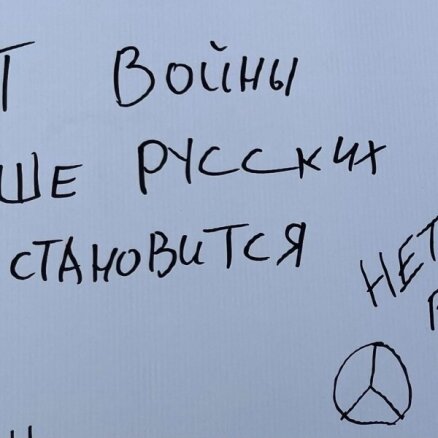 Т ВОЙНЫ
ШЕ РУССКИХ
СТАНОВИТСЯ
НЕТ